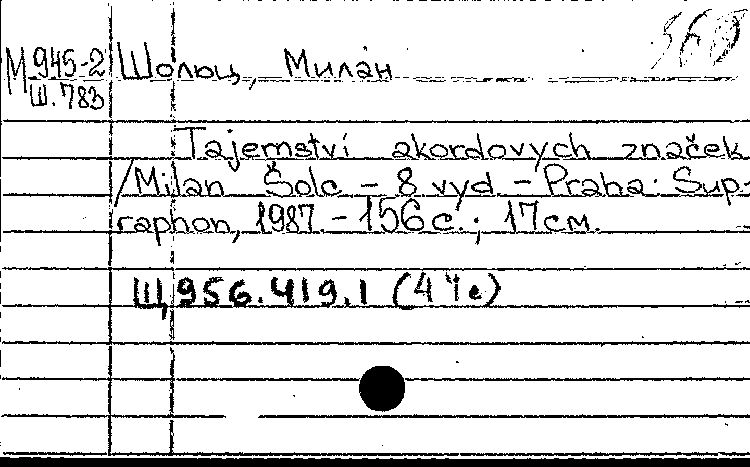 М 945-2 Шолюц, Милан
Ш.783
Tajemství akordovych značek
/Milan Šolc - 8 vyd. - Praha: Sup-
raphon, 1987. - 156 с.; 17 см.
Щ956.419.1 (4Че)